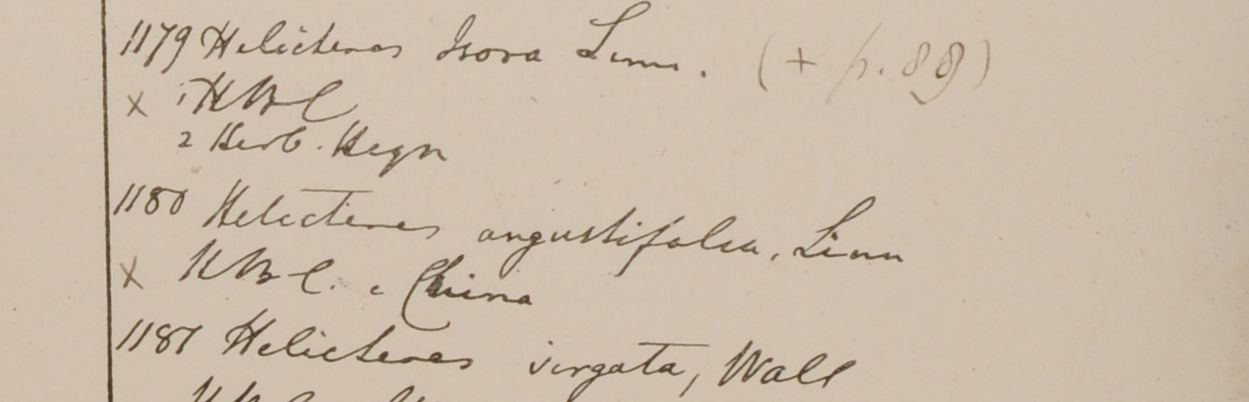 1179 Helicteres Isora Linn. (+ p. 89)
x 1 HBC
2 Herb. Heyn
1180 Helicteres angustifolia, Linn
x HBC. e China
1181 Helicteres virgata, Wall